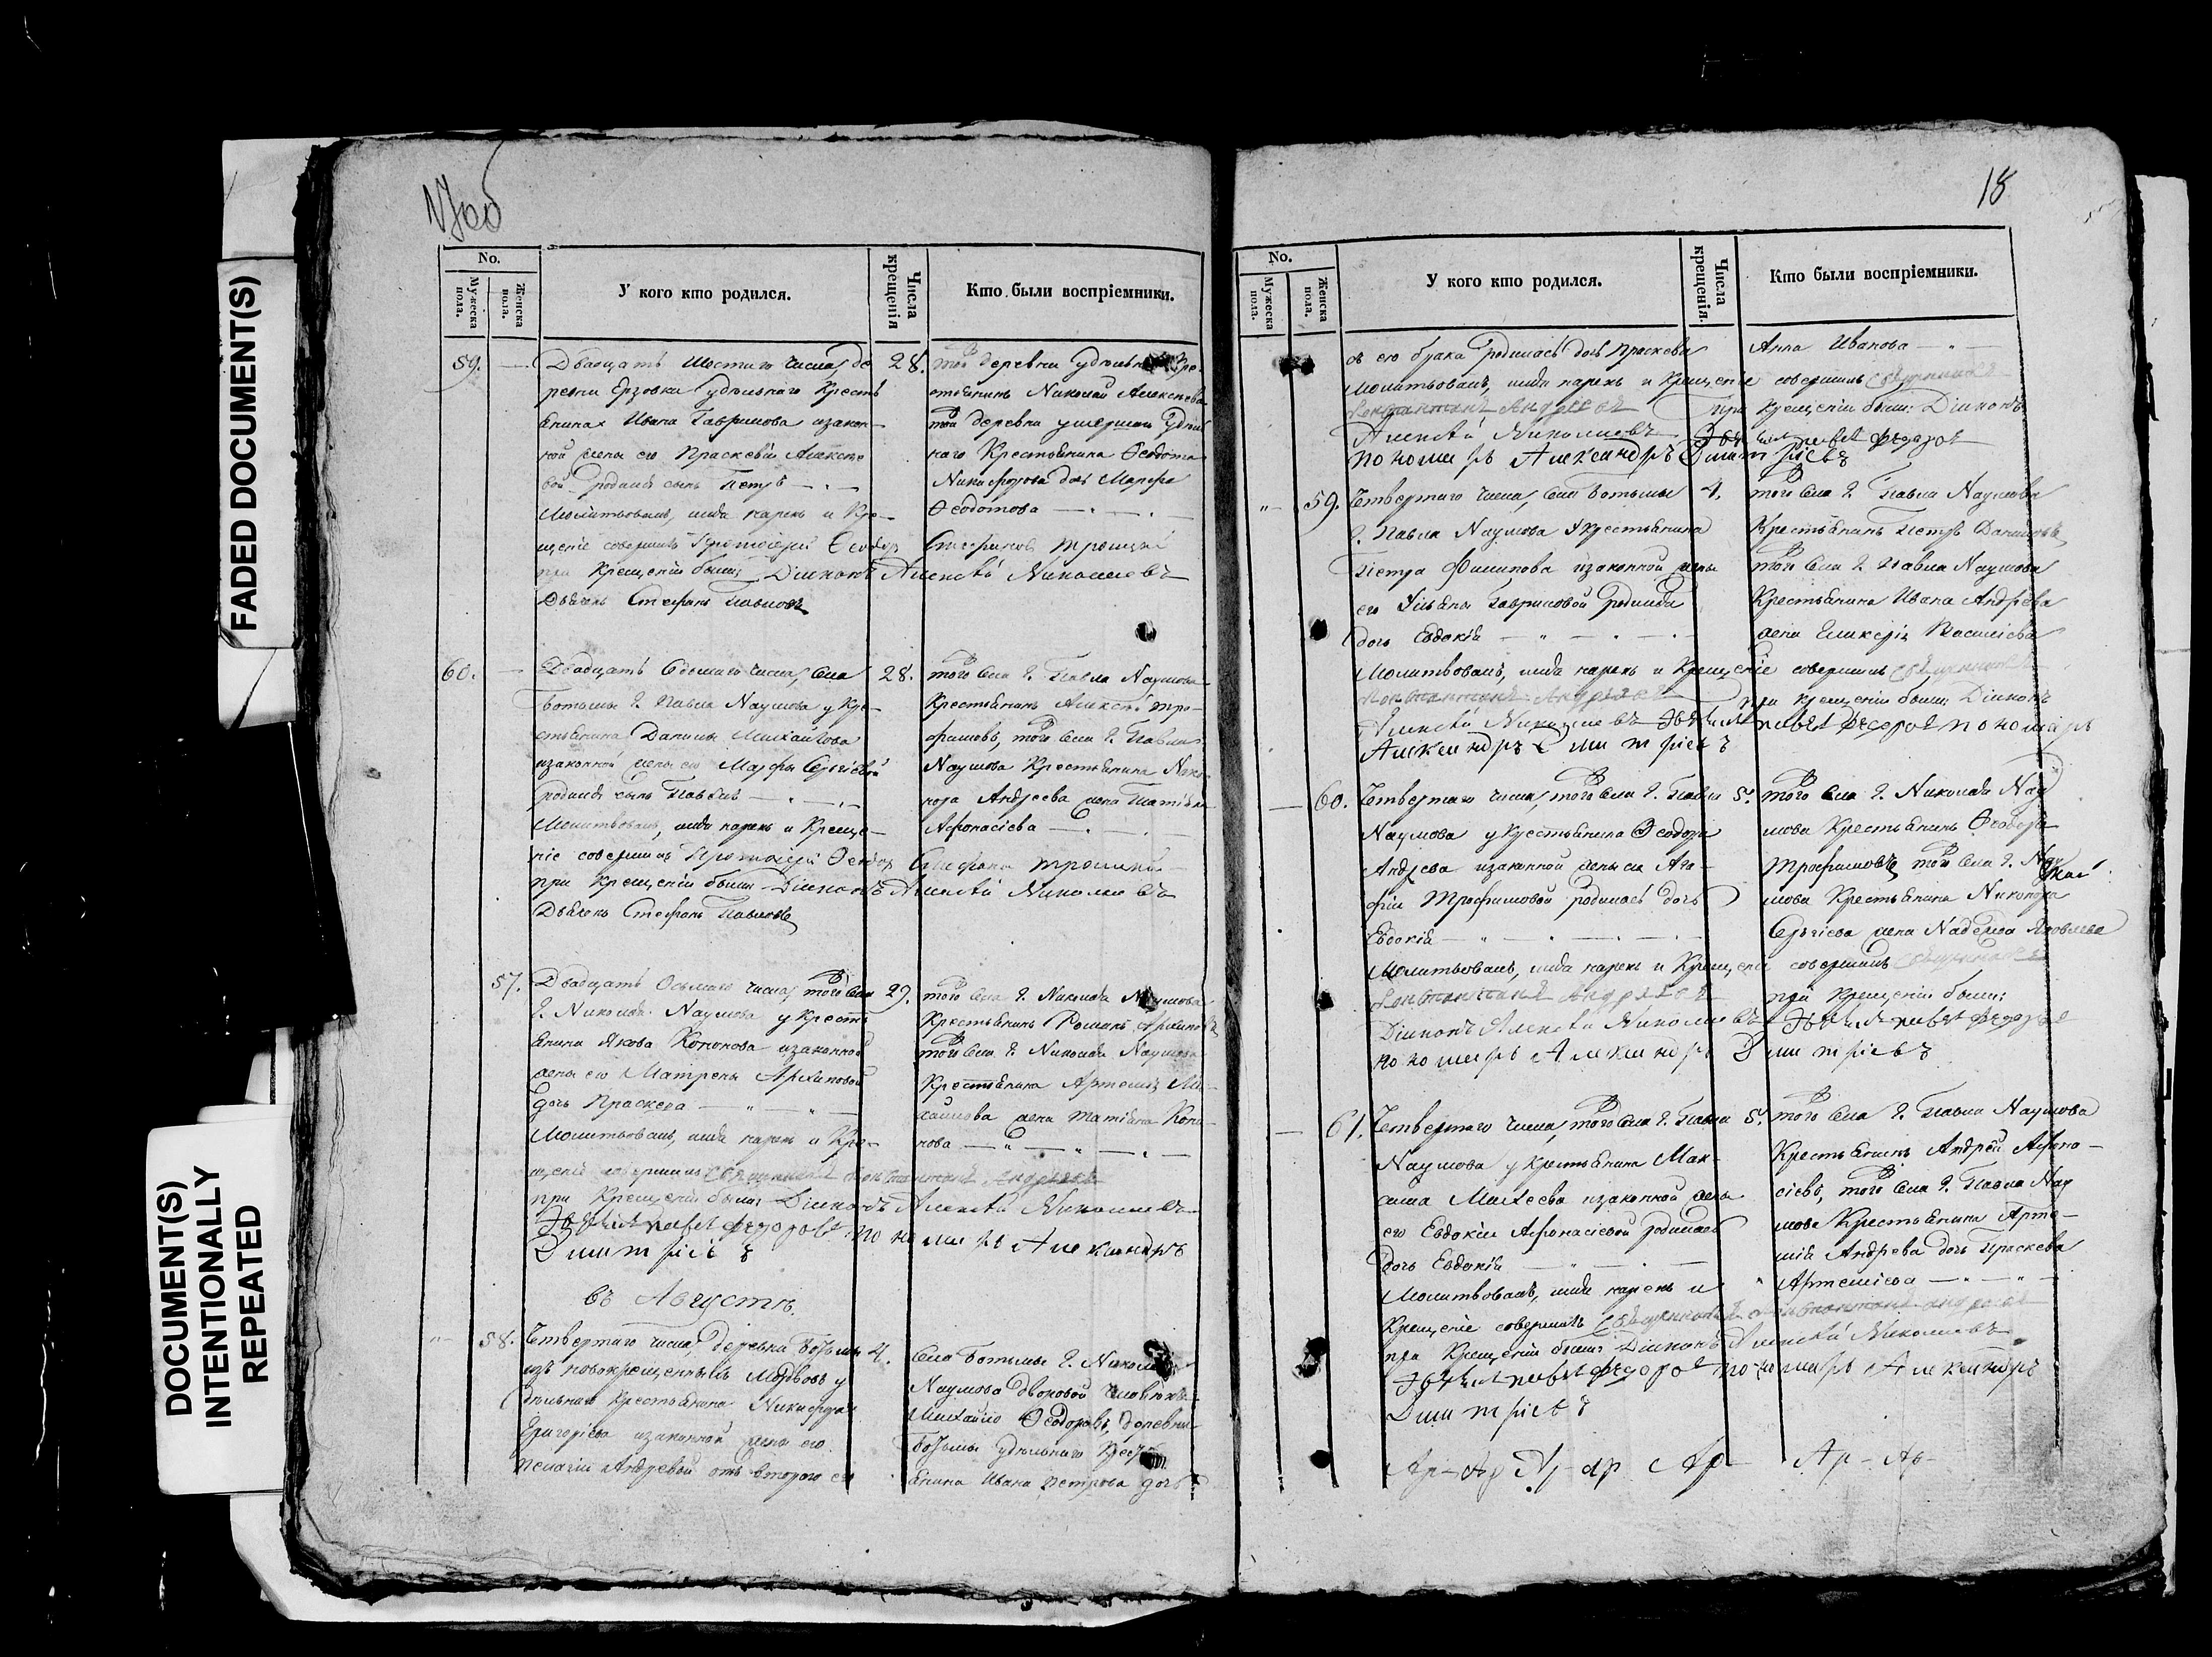 FADED DOCUMENT(S)
DOCUMENT(S)
INTENTIONALLY
REPEATED
No.
Мужеска пола.
Женска пола.
У кого кто родился.
Числа крещенія
Кто были воспріемники.
59.
Двадцать шестаго числа, де
ревни Ерзовки удѣльнаго Кресть
янина Ивана Гаврилова изакон
ной жены его Праскевіи Алексѣе
вой родился сынъ Петръ
Молитвовалъ, имя нарекъ и Кре
щеніе совершилъ Протоіерей Ѳеодоръ Стефановъ Троицкій
при Крещеніи были: Діаконъ Алексѣй Николаевъ
Дьячекъ Стефанъ Павловъ
28.
той деревни удѣльн Кре
стьянинъ Николай Алексѣевъ
той деревни умершаго Удѣль
наго Крестьянина Ѳеодота
Никифорова дочь Марфа
Ѳеодотова
60.
Двадцать Седьмаго числа, села
Ботьмы Г. Павла Наумова у Кре
стьянина Данилы Михайлова
изаконной жены его Марфы Сергіевой
родился сынъ Павелъ
Молитвовалъ, имя нарекъ и Креще
ніе совершилъ Протоіерей Ѳеодоръ Стефановъ Троицкій
при Крещеніи были Діаконъ Алексѣй Николаевъ
Дьячекъ Стефанъ Павловъ
28.
того села Г. Павла Наумова
Крестьянинъ Алексѣй Тро
фимовъ, того села Г. Павла
Наумова Крестьянина Ники
нора Андреева жена Татіана
Афонасіева
57.
Двадцать Осьмаго числа, того села
Г. Николая Наумова у Кресть
янина Якова Кононова изаконной
жены его Матрены Архиповой
дочь Праскева
Молитвовалъ, имя нарекъ и Кре
щеніе совершилъ Священникъ Константинъ Андреевъ
при Крещеніи были: Діаконъ Алексѣй Николаевъ
Дьячекъ Павелъ Федоровъ пономарь Александръ
Дмитріевъ
29.
того села Г. Николая Наумова
Крестьянинъ Романъ Архиповъ
того села Г. Николая Наумова
Крестьянина Артемія Ми
хайлова жена Татіана Коно
нова
въ Августѣ.
58.
Четвертаго числа, деревни Ботьмы
изъ новокрещенныхъ Мордвовъ у
дѣльнаго Крестьянина Никифора
Григоріева изаконной жены его
Пелагіи Андреевой отъ втораго ея
4.
села Ботьмы Г. Николая
Наумова дворовой человѣкъ
Михайло Ѳеодоровъ, деревни
Ботьмы удѣльнаго Кресть
янина Ивана Петрова дочь
18
No.
Мужеска пола.
Женска пола.
У кого кто родился.
Числа крещенія.
Кто были воспріемники.
съ его брака родилась дочь Праскева
Молитвовалъ, имя нарекъ и Крещеніе совершилъ Священникъ
Константинъ Андреевъ при Крещеніи были: Діаконъ
Алексѣй Николаевъ Дьячекъ Павелъ Федоровъ
пономарь Александръ Дмитріевъ
Анна Иванова
59.
Четвертаго числа, села Ботьмы
Г. Павла Наумова У Крестьянина
Петра Филипова изаконной жены
его Ульяны Гавриловой родилась
дочь Евдокія
Молитвовалъ, имя нарекъ и Крещеніе совершилъ Священникъ
Константинъ Андреевъ при Крещеніи были Діаконъ
Алексѣй Николаевъ Дьячекъ Павелъ Федоровъ пономарь
Александръ Дмитріевъ
4.
того села Г. Павла Наумова
Крестьянинъ Петръ Даниловъ
того села Г. Павла Наумова
Крестьянина Ивана Андреева
жена Гликерія Василіева
60.
Четвертаго числа, того села Г. Павла
Наумова у Крестьянина Ѳеодора
Андреева изаконной жены его Ага
фіи Трофимовой родилась дочь
Евдокія
Молитвовалъ, имя нарекъ и Крещеніе совершилъ Священникъ
Константинъ Андреевъ при Крещеніи были:
Діаконъ Алексѣй Николаевъ Дьячекъ Павелъ Федоровъ
пономарь Александръ Дмитріевъ
5.
того села Г. Николая Нау
мова Крестьянинъ Ѳеодоръ
Трофимовъ, того села Г. Ник
мова Крестьянина Никонора
Сергіева жена Надежда Яковлева
61.
Четвертаго числа, того села Г. Павла
Наумова у Крестьянина Мак
сима Михеева изаконной жены
его Евдокіи Афонасіевой родилась
дочь Евдокія
Молитвовалъ, имя нарекъ и
Крещеніе совершилъ Священникъ Константинъ Андреевъ
при Крещеніи были: Діаконъ Алексѣй Николаевъ
Дьячекъ Павелъ Федоровъ пономарь Александръ
Дмитріевъ
5.
того села Г. Павла Наумова
Крестьянинъ Андрей Афона
сіевъ, того села Г. Павла Нау
мова Крестьянина Арте
мія Андреева дочь Праскева
Артеміева
Ар-Ар Ар-ар Ар Ар-Ар-